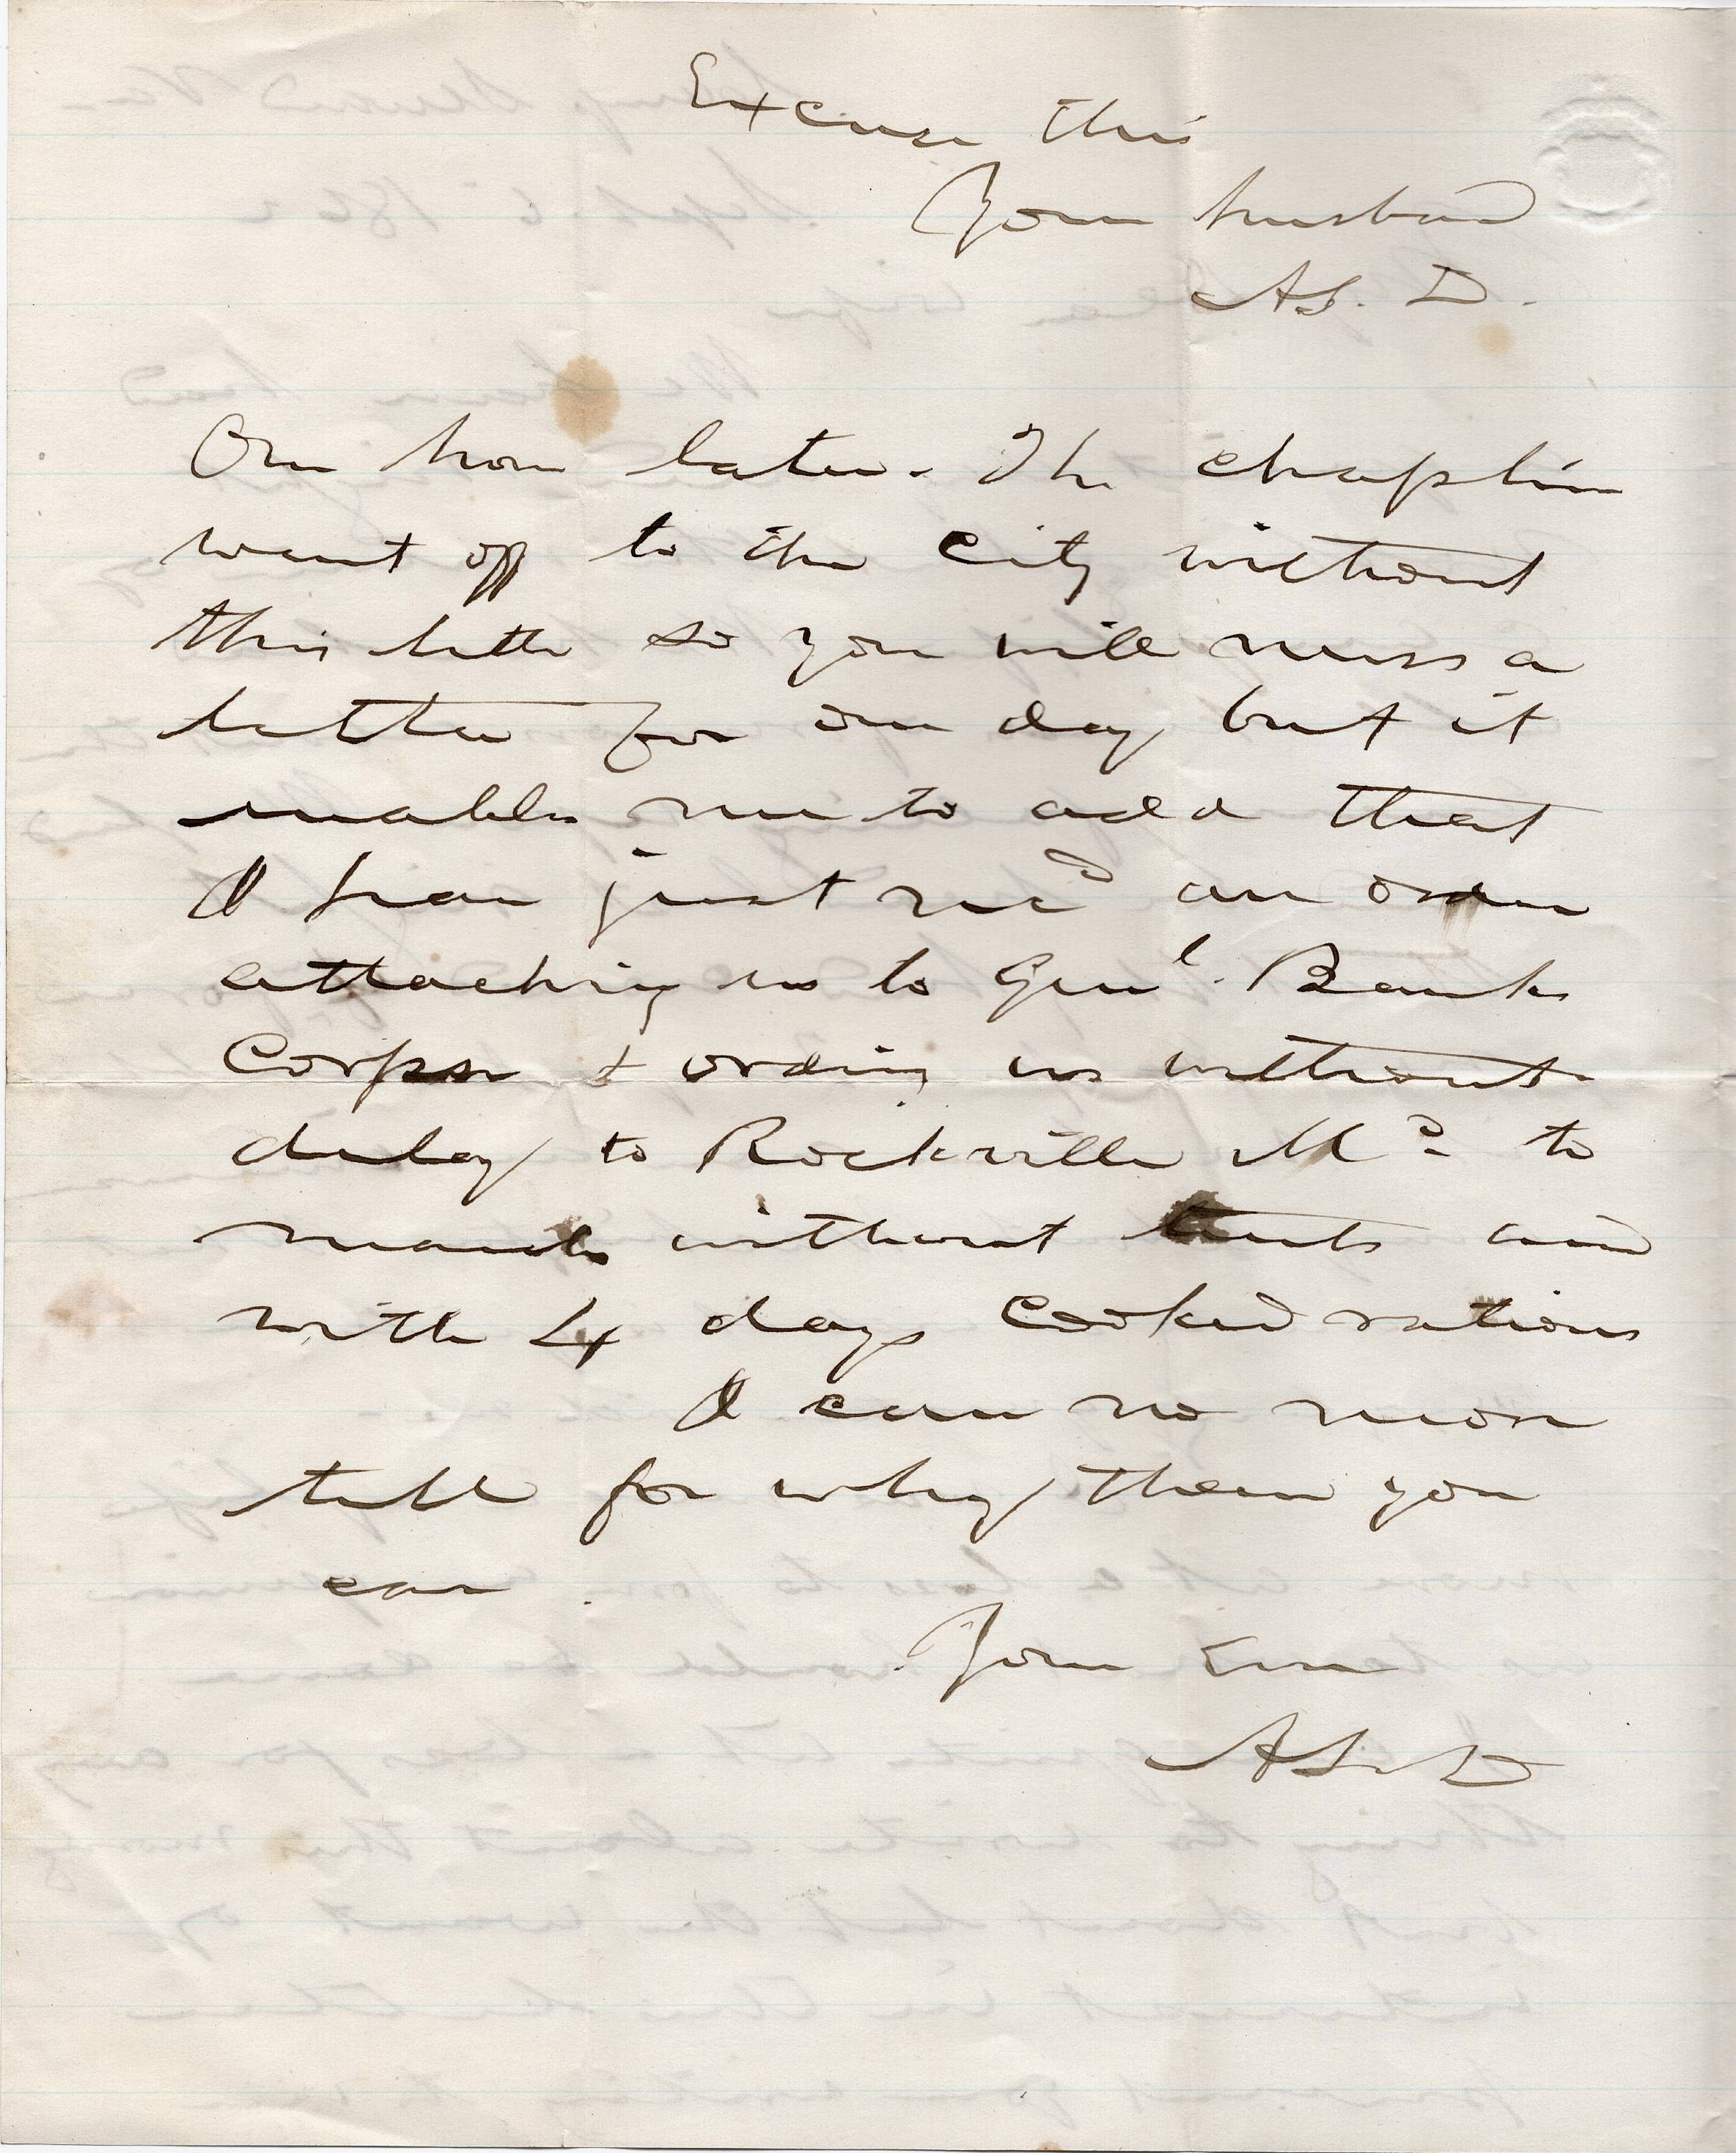 Excuse this
Your husband
A S. D.
One hour later. The chaplin
went off to the city without
this letter so you will miss a
letter for one day but it
enables me to add that
I have just recd an order
attaching us to Genl. Banks
Corps & ordering us without
delay to Rockville Md to
march without tents and
with 4 days cooked rations
I can no more
tell for why than you
can.
Your
A S. D